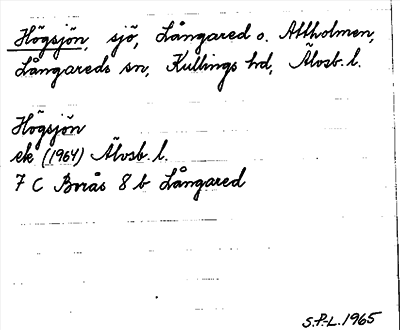 Högsjön, sjö, Långared o. Attholmen,
Långareds sn, Kullings hd, Älvsb. l.
Högsjön
ek (1964) Älvsb. l.
7 C Borås 8 b Långared
S.P-L. 1965